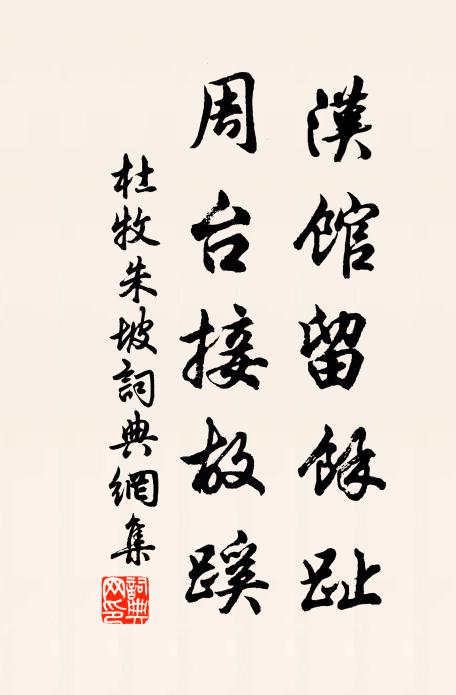 漢館留餘趾
周台接故蹊
杜牧朱坡詞典網集
詞典網印